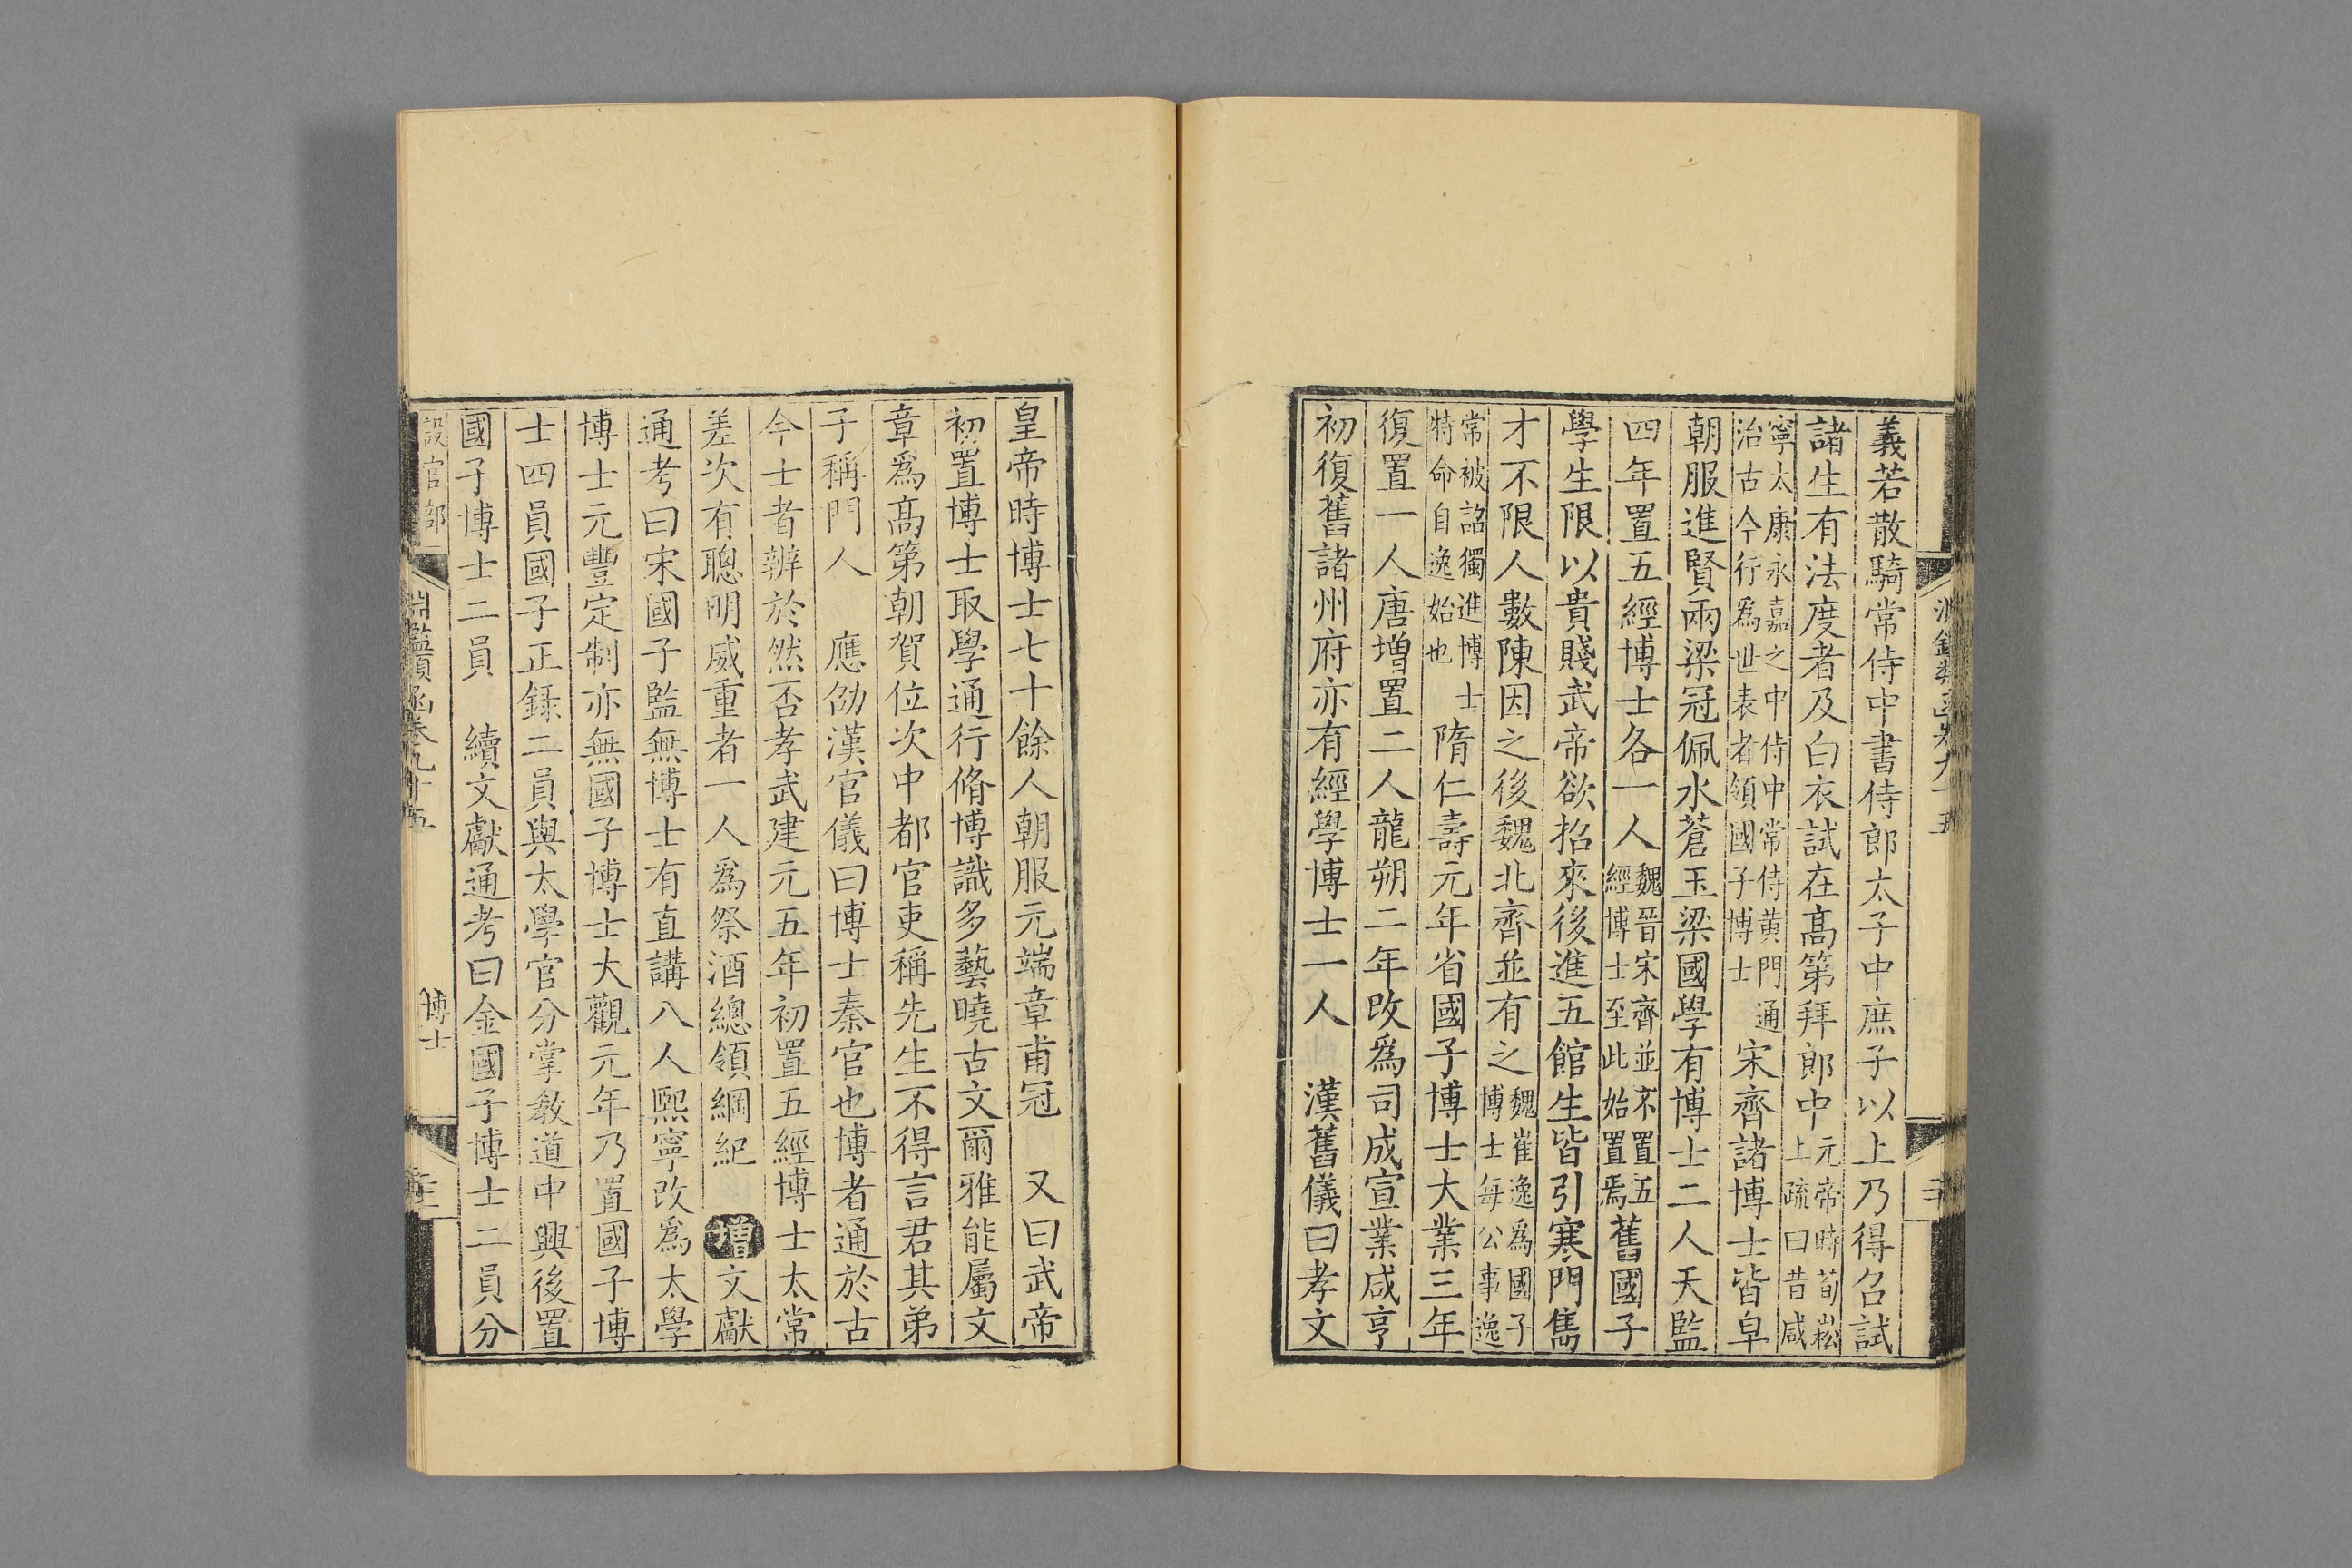 義若散騎常侍中書侍郎太子中庶子以上乃得召試
諸生有法度者及白衣試在髙第拜郎中元帝時荀崧上疏曰昔咸
寧太康永嘉之中侍中常侍黄門通治古今行爲世表者領國子博士宋齊諸博士皆皁
朝服進賢兩梁冠佩水蒼玉梁國學有博士二人天監
四年置五經博士各一人魏晉宋齊並不置五經博士至此始置焉舊國子
學生限以貴賤武帝欲招來後進五館生皆引寒門雋
才不限人數陳因之後魏北齊並有之魏崔逸爲國子博士每公事逸
常被詔獨進博士特命自逸始也隋仁壽元年省國子博士大業三年
復置一人唐增置二人龍朔二年改爲司成宣業咸亨
初復舊諸州府亦有經學博士一人　漢舊儀曰孝文
皇帝時博士七十餘人朝服元端章甫冠　又曰武帝
初置博士取學通行脩博識多藝曉古文爾雅能屬文
章爲髙第朝賀位次中都官吏稱先生不得言君其弟
子稱門人　應劭漢官儀曰博士秦官也博者通於古
今士者辨於然否孝武建元五年初置五經博士太常
差次有聰明威重者一人爲祭酒總領綱紀　增文獻
通考曰宋國子監無博士有直講八人熙寧改爲太學
博士元豐定制亦無國子博士大觀元年乃置國子博
士四員國子正錄二員與太學官分掌敎道中興後置
國子博士二員　續文獻通考曰金國子博士二員分
設官部
淵鑑類函卷九十五
博士